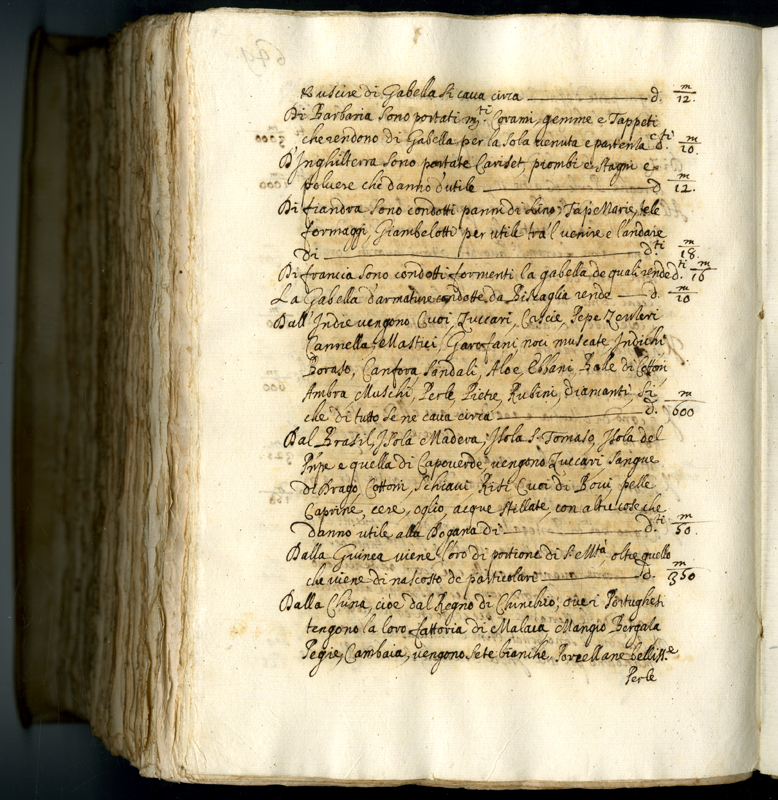 uscire di Gabella si cava circa — d. m/12.
Di Barbaria sono portati m.ti Corami, gemme e Tappeti
che rendono di Gabella per la sola venuta e partenla d.ti m/10.
D'Inghilterra sono portate Cariset, piombi e stagni e
polvere che danno d'utile — d m/12.
Di fiandra sono condotti panni di Lino, Tapemarie, tele
formaggi, Giambelotti per utile tra'l venire e l'andare
di — d.ti m/18.
Di francia sono condotti formenti la gabella de quali rende d.ti m/16
La Gabella d'armature condotte da Biscaglia rende — d. m/10
Dall'Indie vengono Cuoi, Zuccari, Cascie, Pepe Zenleri
Cannella Mastici, Garofani noci muscate Indichi
Boraso, Canfora Sandali, Aloe, Ebbani, Balle di Cottoni
Ambra Muschi, Perle, Pietre, Rubini, diamanti, si
che di tutto se ne cava circa — d. m/600
Dal Brasil, Isola Madera, Isola S. Tomaso, Isola del
Pnpe e quella di Capoverde, vengono Zuccari sangue
di Drago, Cottoni, Schiavi, Risi Cuoi di Bovi, pelle
Caprine, cere, oglio, acque stillate, con altre cose che
danno utile alla Dogana di — d.ti m/50.
Dalla Guinea viene l'oro di portione di S. Mtà oltre quello
che viene di nascosto de particolari — d. m/350
Dalla China, cioè dal Regno di Chinchio, overi Portughesi
tengono la loro fattoria di Malaca, Mangio Bergala
Pegie, Cambaia, vengono sete bianche, Porcellane belliss.e
Perle